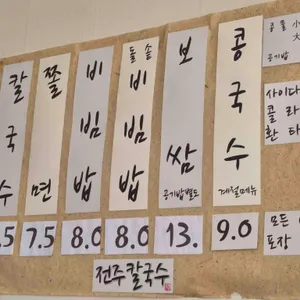 칼국수
.5
쫄면
7.5
비빔밥
8.0
돌솥
비빔밥
8.0
보쌈
공기밥별도
13.
콩국수
계절메뉴
9.0
콩물 小
大
공기밥
사이다
콜라
환타
모든
포장
전주칼국수